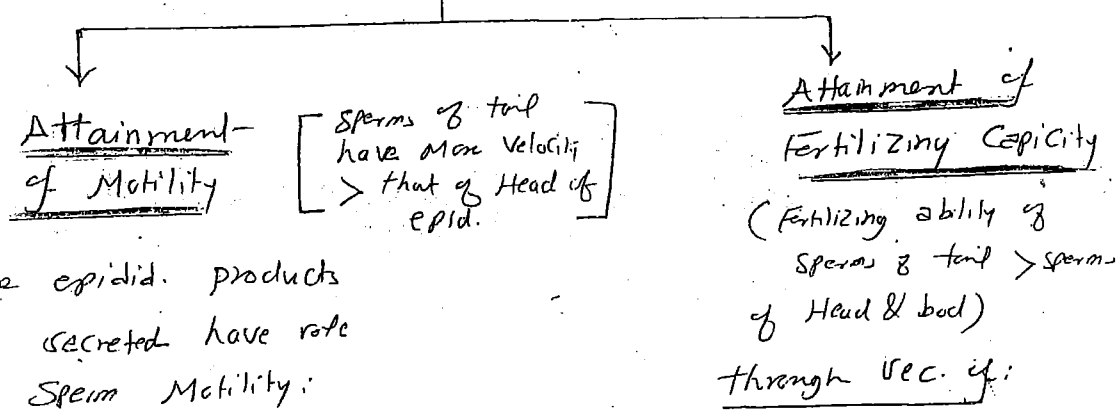 Attainment-
of Motility
[ Sperms of tail
have More Velocity
> that of Head of
epid. ]
e epidid. products
secreted have role
Sperm Motility:
Attainment of
Fertilizing Capicity
(Fertilizing ability of
sperms of tail > sperms
of Head & bod)
through